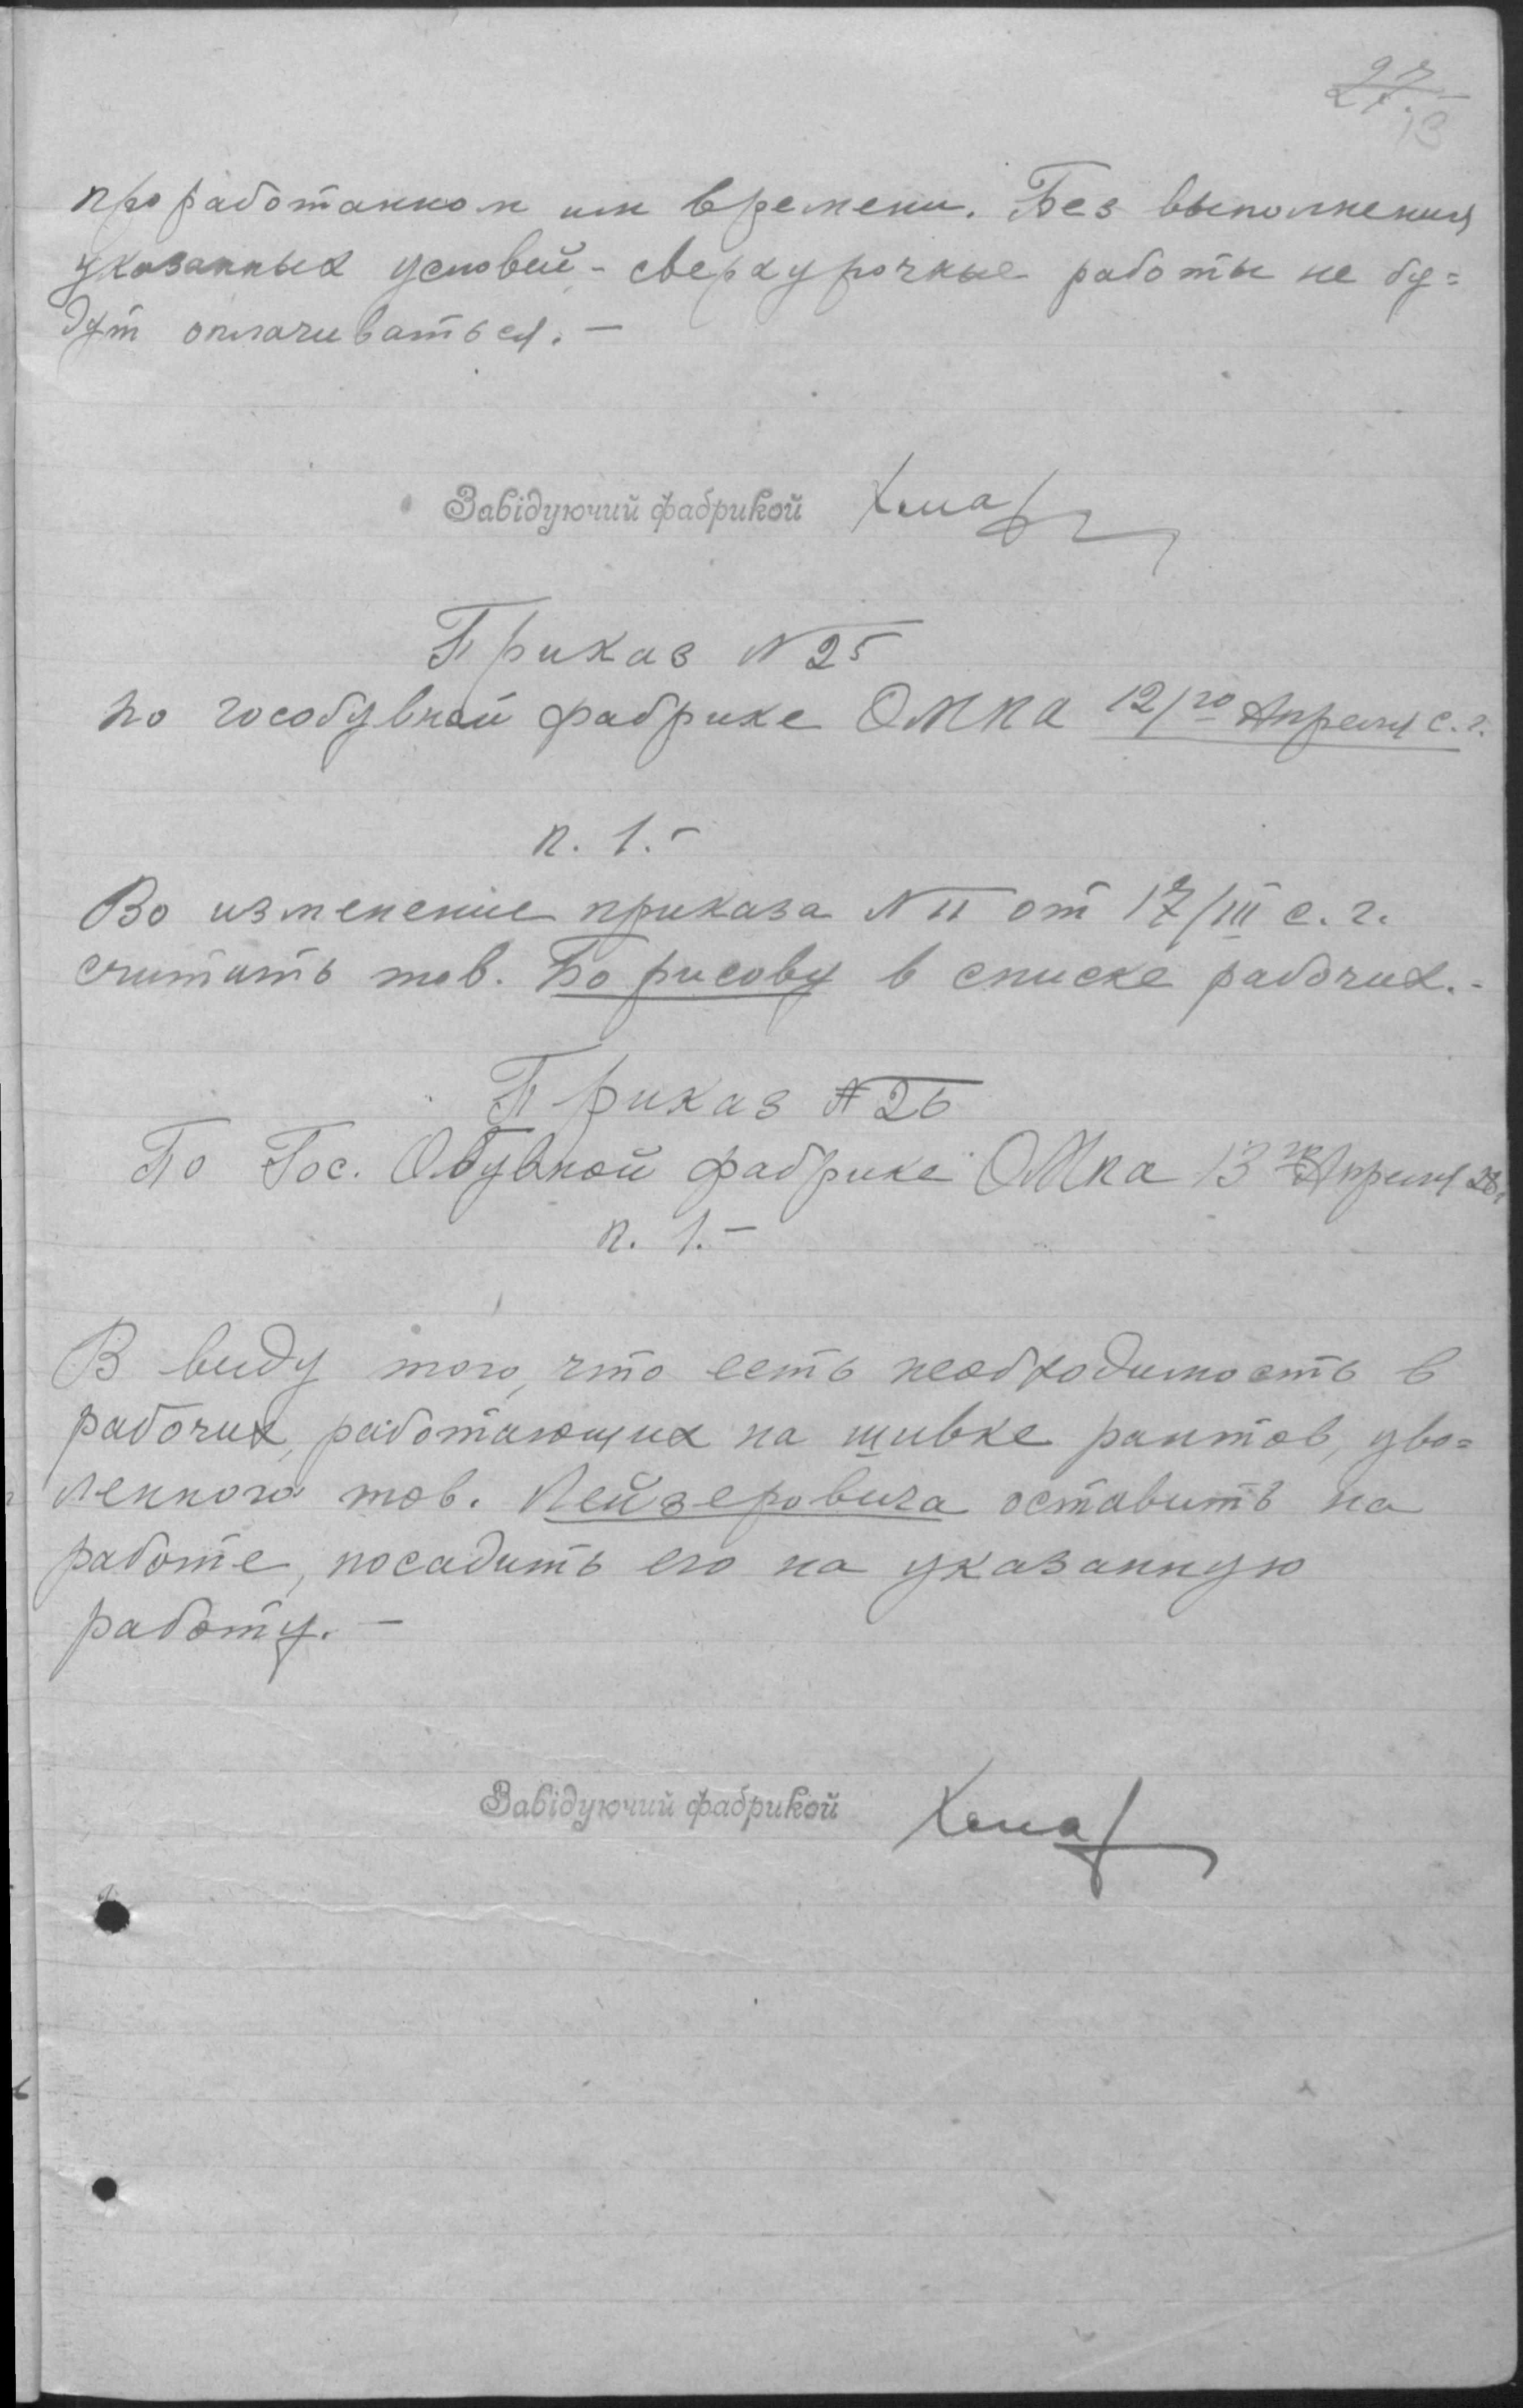 27.
13
проработанном им времени. Без выполнения
указанных условий - сверхурочные работы не бу=
дут оплачиваться. —
Завідуючий фабрикой
Приказ N 25
по гособувной фабрике ОМКА 12/го Апреля с. г.
п. 1. -
Во изменение приказа N 11 от 17/III с. г.
считать тов. Борисову в списке рабочих. -
Приказ N 26
По Гос. Обувной фабрике ОМка 13го Апреля 28г
п. 1. —
В виду того, что есть необходимость в
рабочих, работающих на шивке рантов, уво=
ленного тов. Лейзеровича оставить на
работе, посадить его на указанную
работу. —
Завідуючий фабрикой